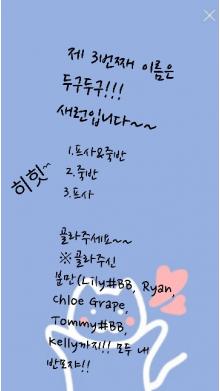 제 3번째 이름은
두구두구!!!
새런입니다~~
1.프사&죽반
2.죽반
3.프사
히힛~
골라주세요~~
※골라주신
분만(Lily#BB, Ryan,
Chloe Grape,
Tommy#BB,
Kelly까지!! 모두 내
반모자!!